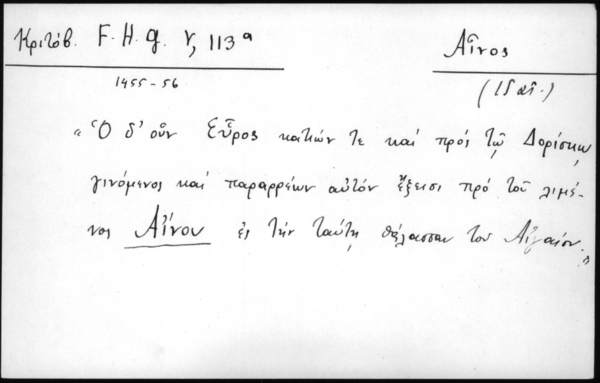 Κριτόβ. F. H. g. V, 113ª
Αἶνος
1455-56
(15 αἰ.)
"Ὁ δ' οὖν Εὖρος κατιών τε καί πρός τῷ Δορίσκῳ
γινόμενος καί παραρρέων αὐτόν ἔξεισι πρό τοῦ λιμέ-
νος Αἴνου ἐς τήν ταύτῃ θάλασσαν τοῦ Αἰγαίου."